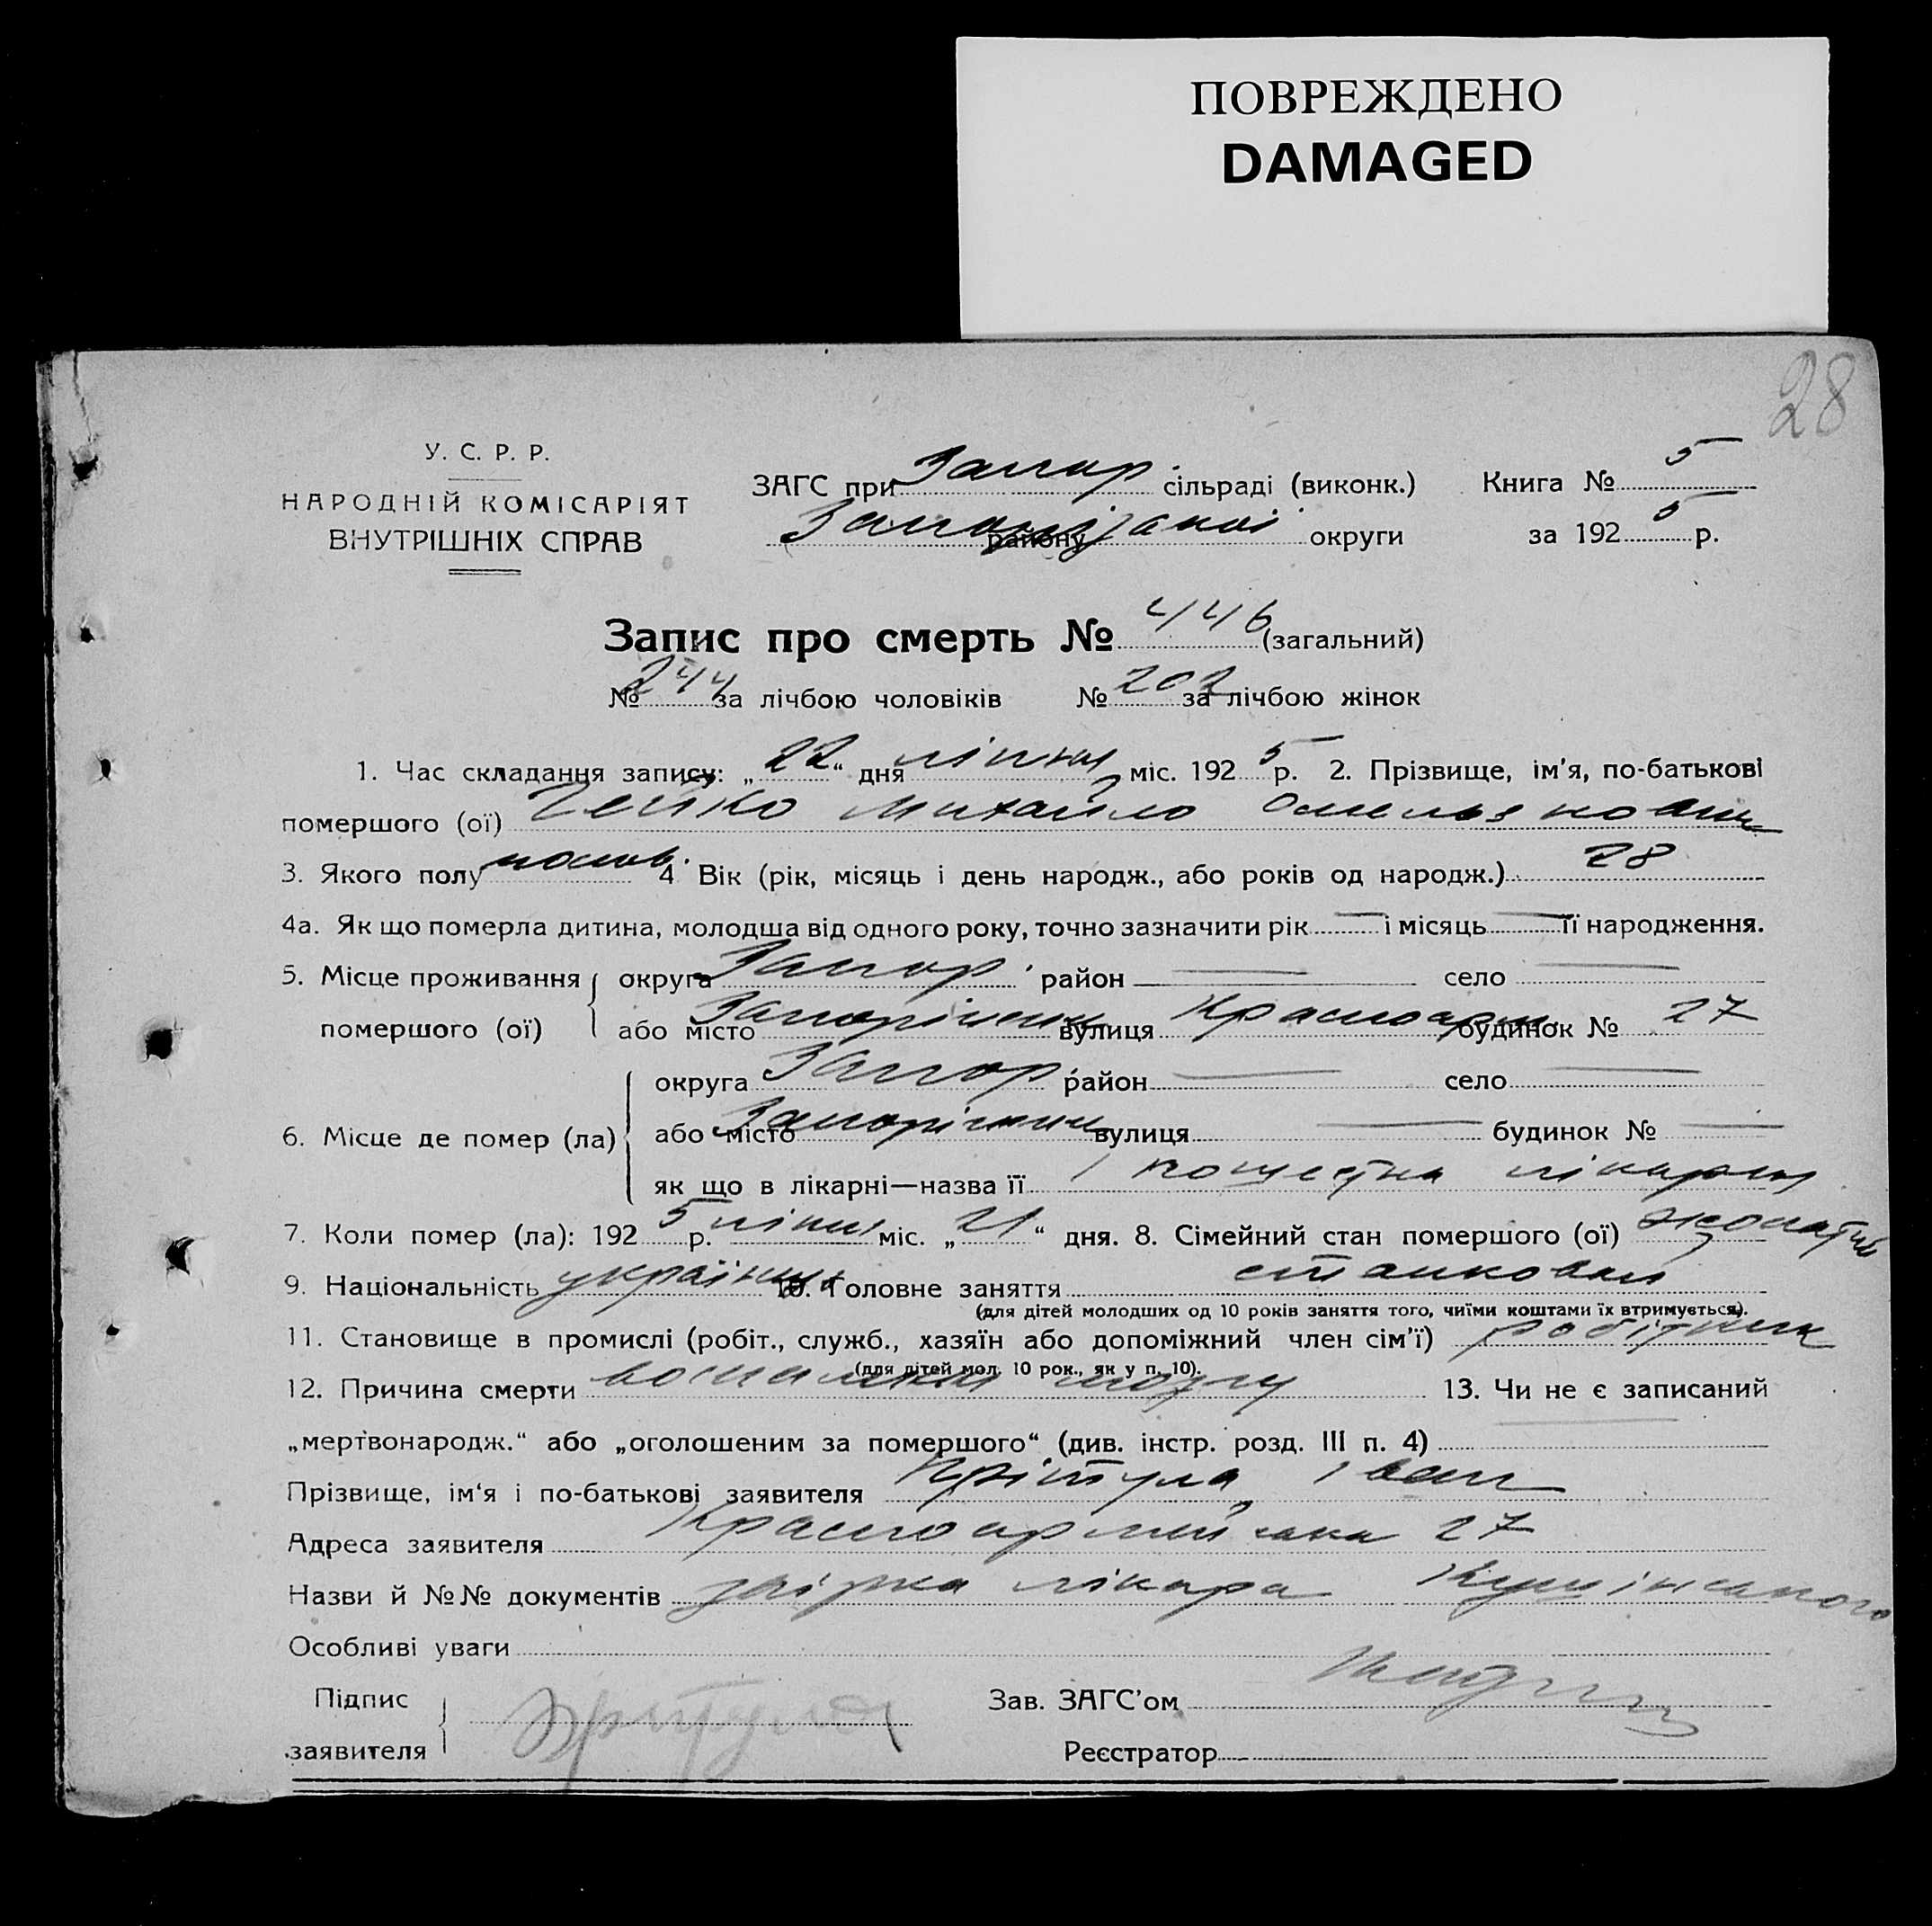 ПОВРЕЖДЕНО
DAMAGED
28
У. С. Р. Р.
НАРОДНІЙ КОМІСАРІЯТ
ВНУТРІШНІХ СПРАВ
ЗАГС при Запор сільраді (виконк.) Книга № 5
району округи за 1925 р.
Запис про смерть № 446 (загальний)
№ 244 за лічбою чоловіків № 202 за лічбою жінок
1. Час складання запису: „22“ дня ліпня міс. 1925 р. 2. Прізвище, ім'я, по-батькові
помершого (ої) Михайло
3. Якого полу 4 Вік (рік, місяць і день народж., або років од народж.) 28
4а. Як що померла дитина, молодша від одного року, точно зазначити рік — і місяць — її народження.
5. Місце проживання округа Запор. район — село —
помершого (ої) або місто вулиця Красноарм. будинок № 27
округа Запор. район — село —
6. Місце де помер (ла) або місто вулиця — будинок № —
як що в лікарні—назва її лікарня
7. Коли помер (ла): 1925 р. ліпня міс. „21“ дня. 8. Сімейний стан помершого (ої)
9. Національність 10. Головне заняття
(для дітей молодших од 10 років заняття того, чиїми коштами їх втримується).
11. Становище в промислі (робіт., служб., хазяїн або допоміжний член сім'ї) робітник
(для дітей мол. 10 рок., як у п. 10).
12. Причина смерти мозгу 13. Чи не є записаний
„мертвонародж.“ або „оголошеним за помершого“ (див. інстр. розд. III п. 4) —
Прізвище, ім'я і по-батькові заявителя Прітула Іван
Адреса заявителя Красноармійська 27
Назви й №№ документів лікаря
Особливі уваги
Підпис Зав. ЗАГС'ом
заявителя Реєстратор